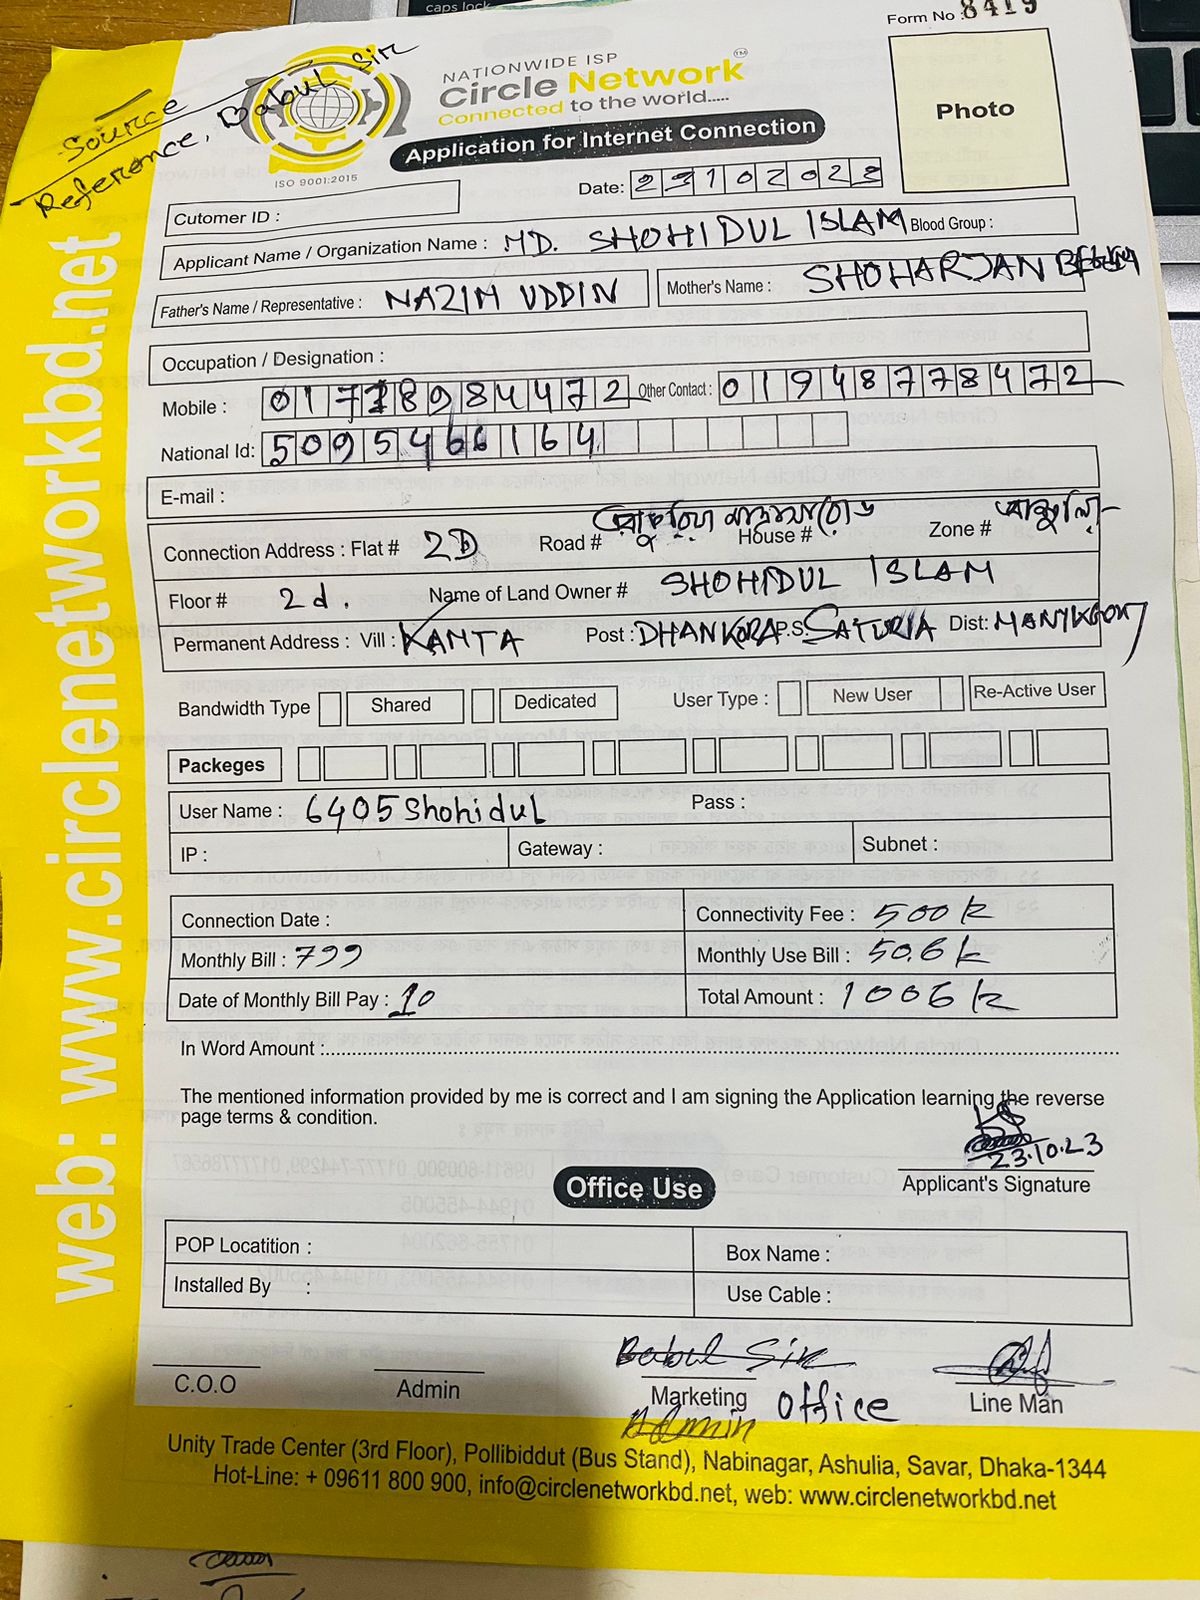 caps lock
Form No : 8419
Source
Reference, Babul Sir
NATIONWIDE ISP
Circle Network
TM
Connected to the world.....
Application for Internet Connection
ISO 9001:2015
Photo
Date: 23102023
Cutomer ID :
Applicant Name / Organization Name : MD. SHOHIDUL ISLAM Blood Group :
Father's Name / Representative : NAZIM UDDIN Mother's Name : SHOHARJAN
Occupation / Designation :
Mobile : Other Contact : 01948778472
National Id: 5095466164
E-mail :
Connection Address : Flat # 2D Road # House # Zone #
Floor # 2d. Name of Land Owner # SHOHIDUL ISLAM
Permanent Address : Vill : KAMTA Post : DHANKORA P.S. SATURIA Dist: MANYKGONJ
Bandwidth Type Shared Dedicated User Type : New User Re-Active User
Packeges
User Name : 6405shohidul Pass :
IP : Gateway : Subnet :
Connection Date : Connectivity Fee : 500 k
Monthly Bill : 799 Monthly Use Bill : 506 k
Date of Monthly Bill Pay : 10 Total Amount : 1006 k
In Word Amount :
The mentioned information provided by me is correct and I am signing the Application learning the reverse
page terms & condition.
23.10.23
Applicant's Signature
Office Use
POP Locatition : Box Name :
Installed By : Use Cable :
Babul Sir
C.O.O Admin Marketing Office Line Man
Admin
Unity Trade Center (3rd Floor), Pollibiddut (Bus Stand), Nabinagar, Ashulia, Savar, Dhaka-1344
Hot-Line: + 09611 800 900, info@circlenetworkbd.net, web: www.circlenetworkbd.net
web: www.circlenetworkbd.net